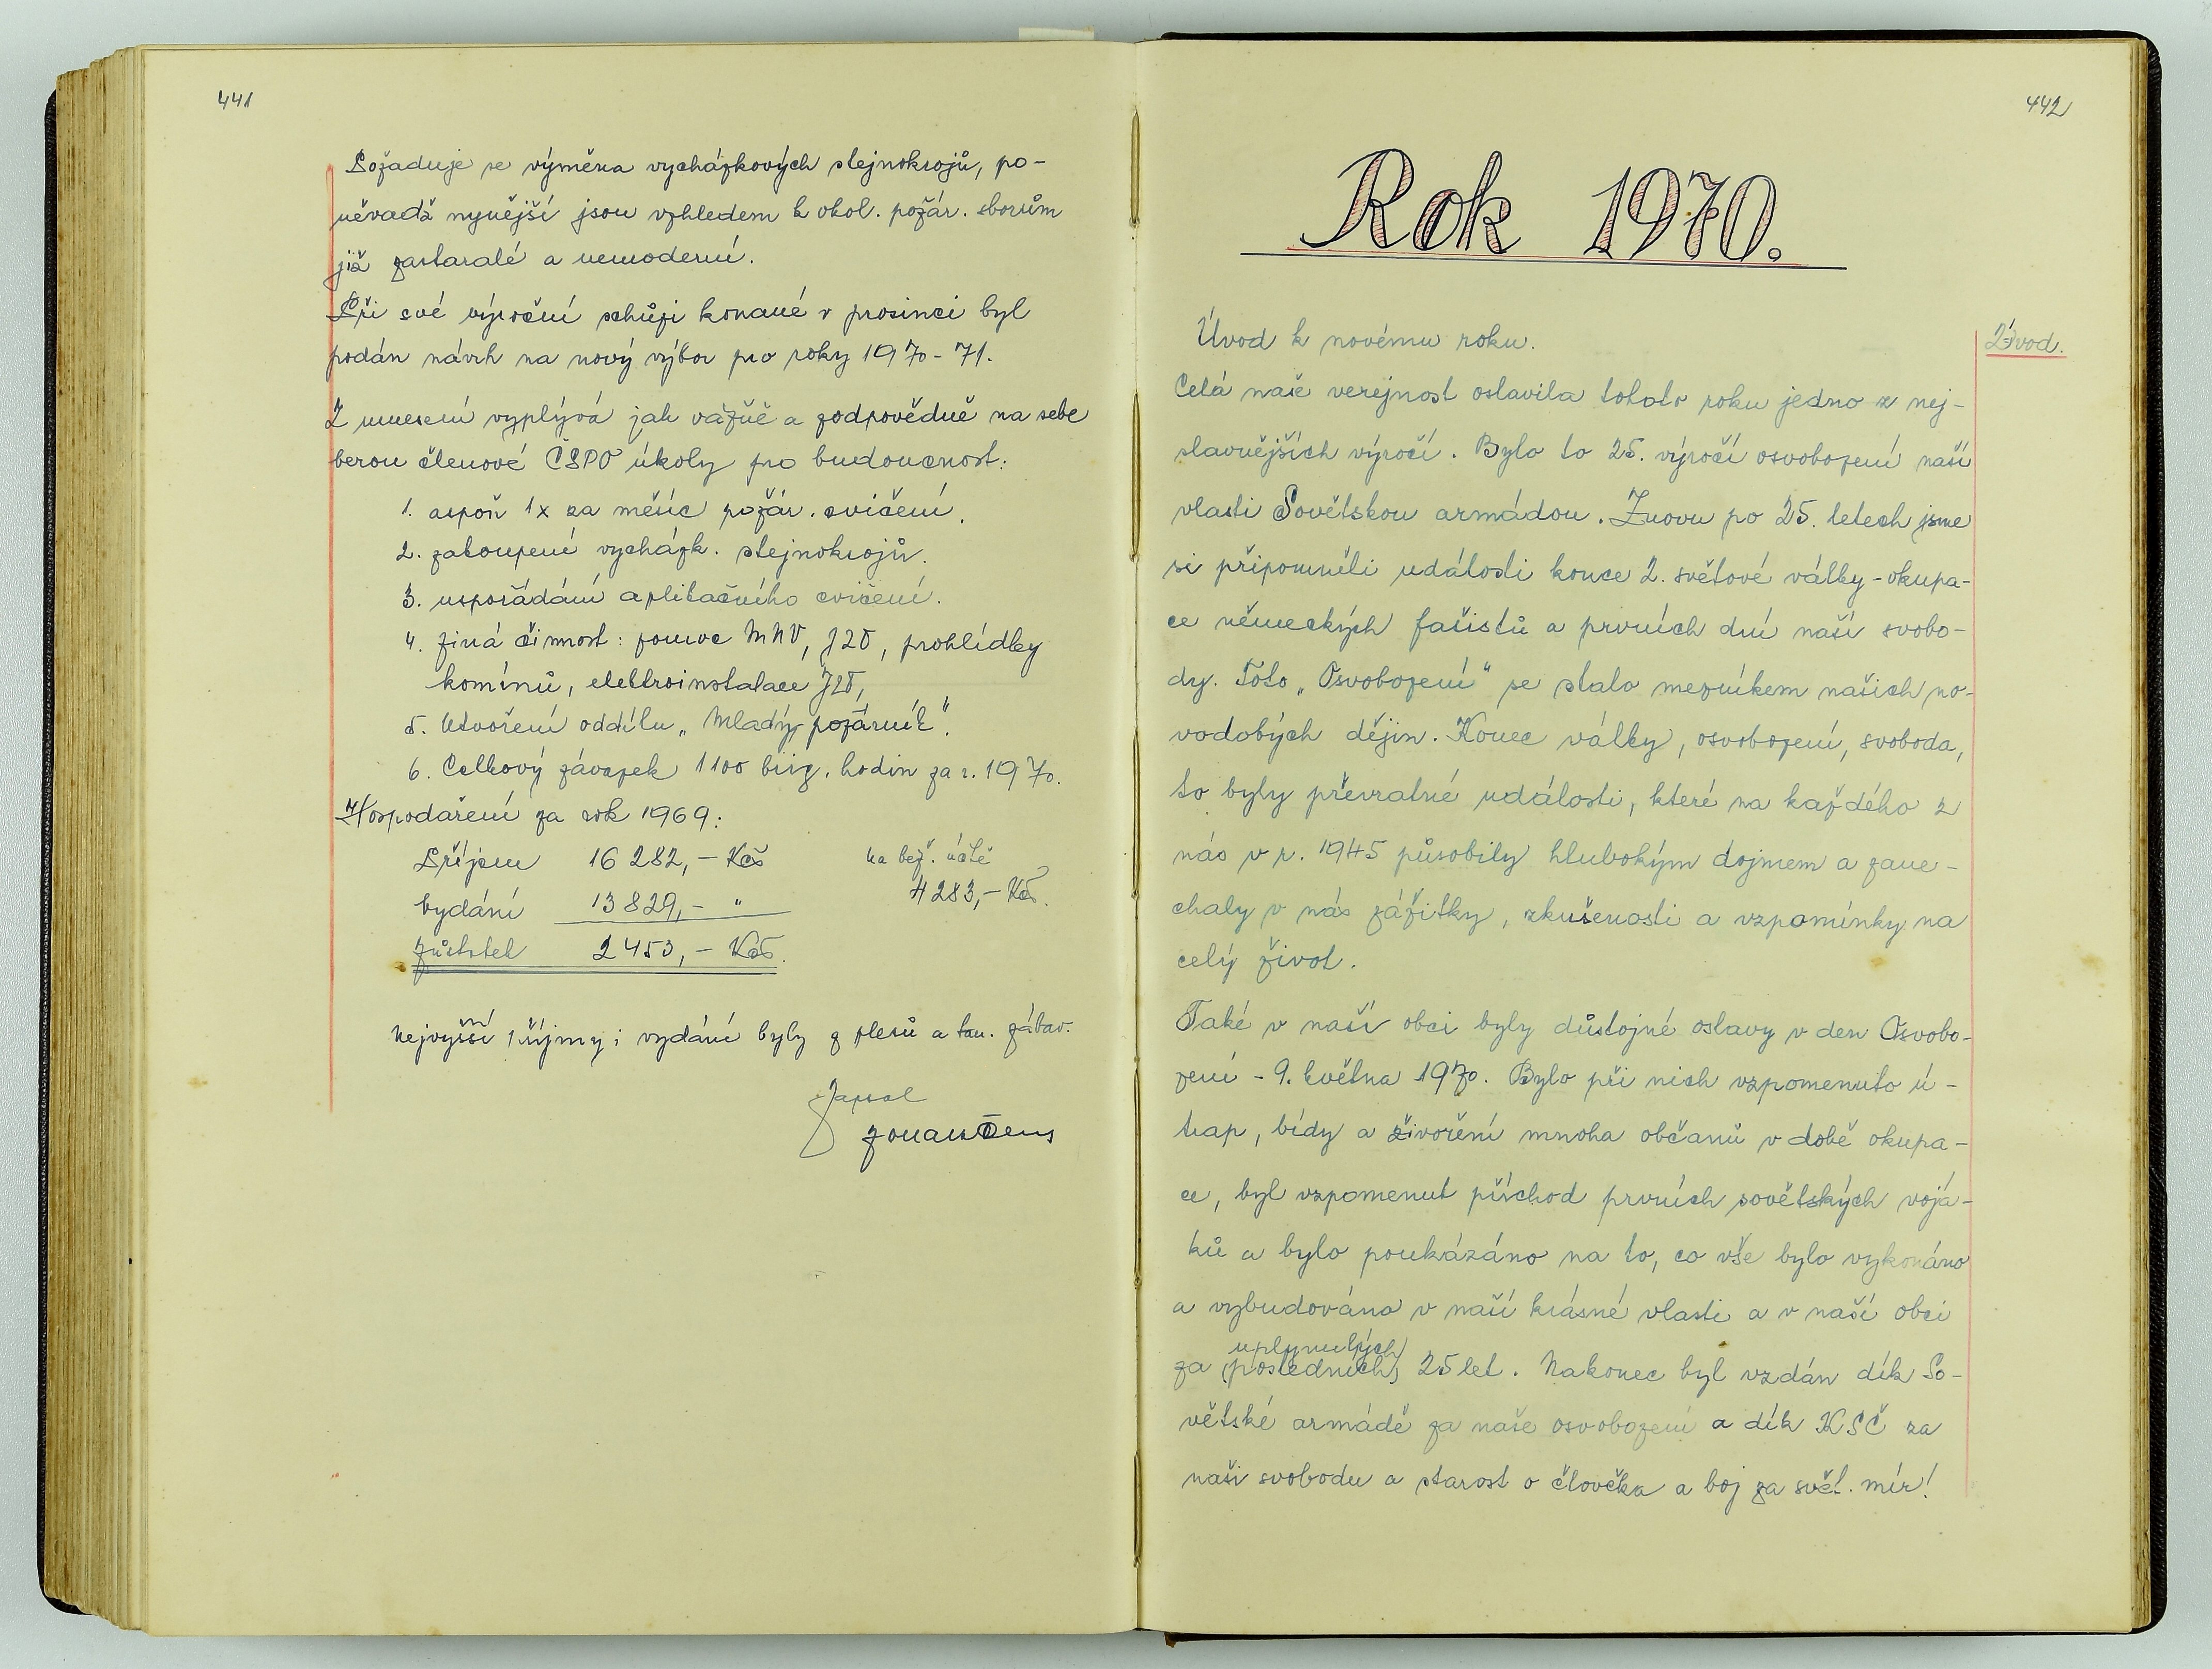 441
Požaduje se výměna vycházkových stejnokrojů, po-
něvadž nynější jsou vzhledem k okol. požár. sborům
již zastaralé a nemoderní.
Při své výroční schůzi konané v prosinci byl
podán návrh na nový výbor pro roky 1970-71.
Z usnesení vyplývá jak vážně a zodpovědně na sebe
berou členové ČSPO úkoly pro budoucnost:
1. aspoň 1x za měsíc požár. cvičení,
2. zakoupení vycházk. stejnokrojů.
3. uspořádání aplikačního cvičení.
4. jiná činnost: pomoc MNV, JZD, prohlídky
komínů, elektroinstalace JZD,
5. Utvoření oddílu „Mladý požárník".
6. Celkový závazek 1100 brig. hodin za r. 1970.
Hospodaření za rok 1969:
Příjem 16 282,- Kčs na běž. účtě
vydání 13 829,- " 4 283,- Kčs.
zůstatek 2 453,- Kčs.
Nejvyšší příjmy i vydání byly z plesů a tan. zábav.
Zapsal
442
Rok 1970.
Úvod k novému roku.
Úvod.
Celá naše verejnost oslavila tohoto roku jedno z nej-
slavnějších výročí. Bylo to 25. výročí osvobození naší
vlasti Sovětskou armádou. Znovu po 25. letech jsme
si připomněli události konce 2. světové války - okupa-
ce německých fašistů a prvních dní naší svobo-
dy. Toto „Osvobození" se stalo mezníkem našich no-
vodobých dějin. Konec války, osvobození, svoboda,
to byly převratné události, které na každého z
nás v r. 1945 působily hlubokým dojmem a zane-
chaly v nás zážitky, zkušenosti a vzpomínky na
celý život.
Také v naší obci byly důstojné oslavy v den Osvobo-
zení - 9. května 1970. Bylo při nich vzpomenuto ú-
trap, bídy a živoření mnoha občanů v době okupa-
ce, byl vzpomenut příchod prvních sovětských vojá-
ků a bylo poukázáno na to, co vše bylo vykonáno
a vybudováno v naší krásné vlasti a v naší obci
uplynulých
za (posledních) 25 let. Nakonec byl vzdán dík So-
větské armádě za naše osvobození a dík KSČ za
naši svobodu a starost o člověka a boj za svět. mír!